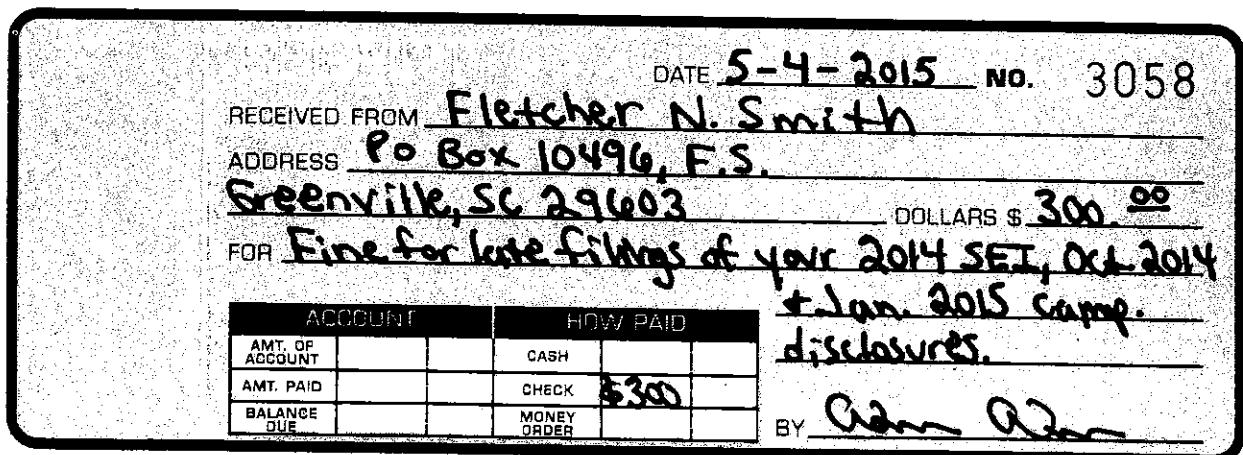 DATE 5-4-2015 NO. 3058
RECEIVED FROM Fletcher N. Smith
ADDRESS PO Box 10496, F.S.
Greenville, SC 29603 DOLLARS $ 300.00
FOR Fine for late filings of your 2014 SEI, Oct 2014
+ Jan. 2015 camp.
disclosures.
ACCOUNT HOW PAID
AMT. OF ACCOUNT CASH
AMT. PAID CHECK $300
BALANCE DUE MONEY ORDER
BY